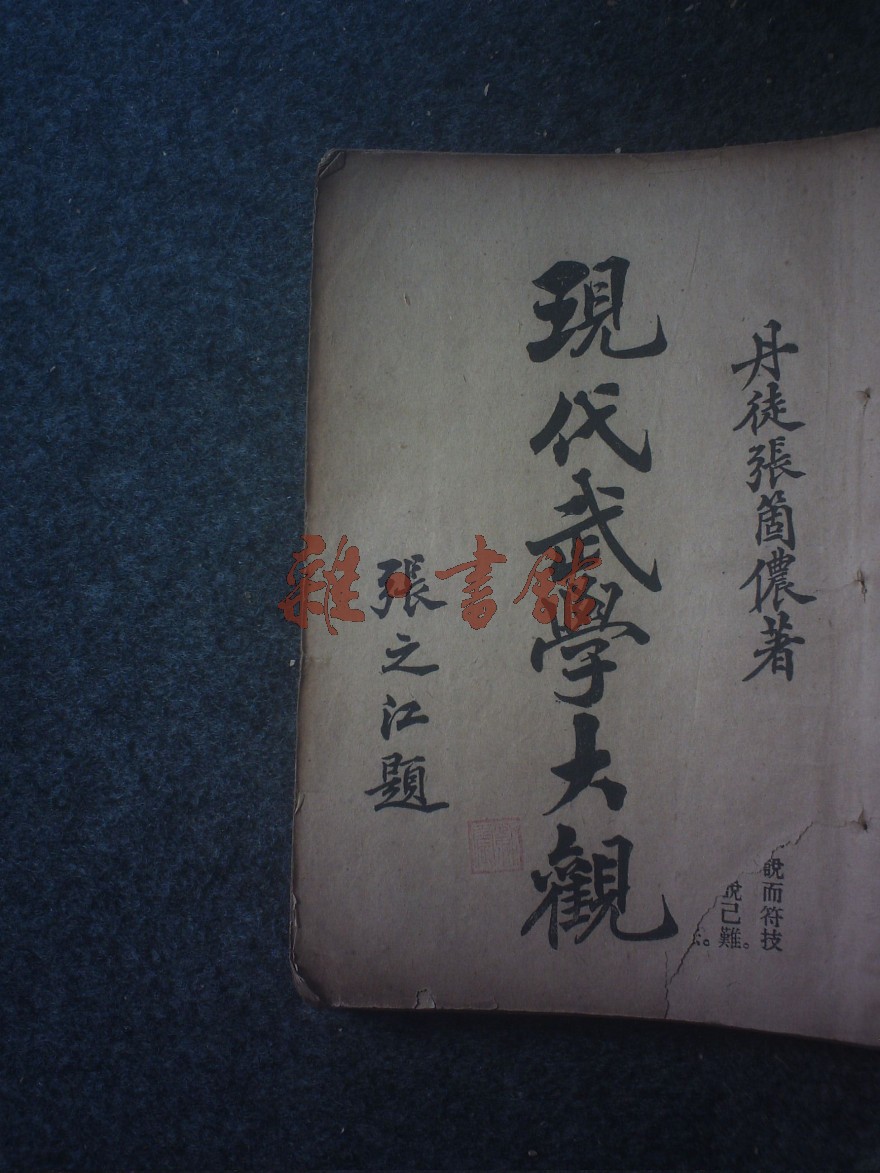 丹徒張箇儂著
現代武學大觀
張之江題
說而符技
說已難。
雜·書館